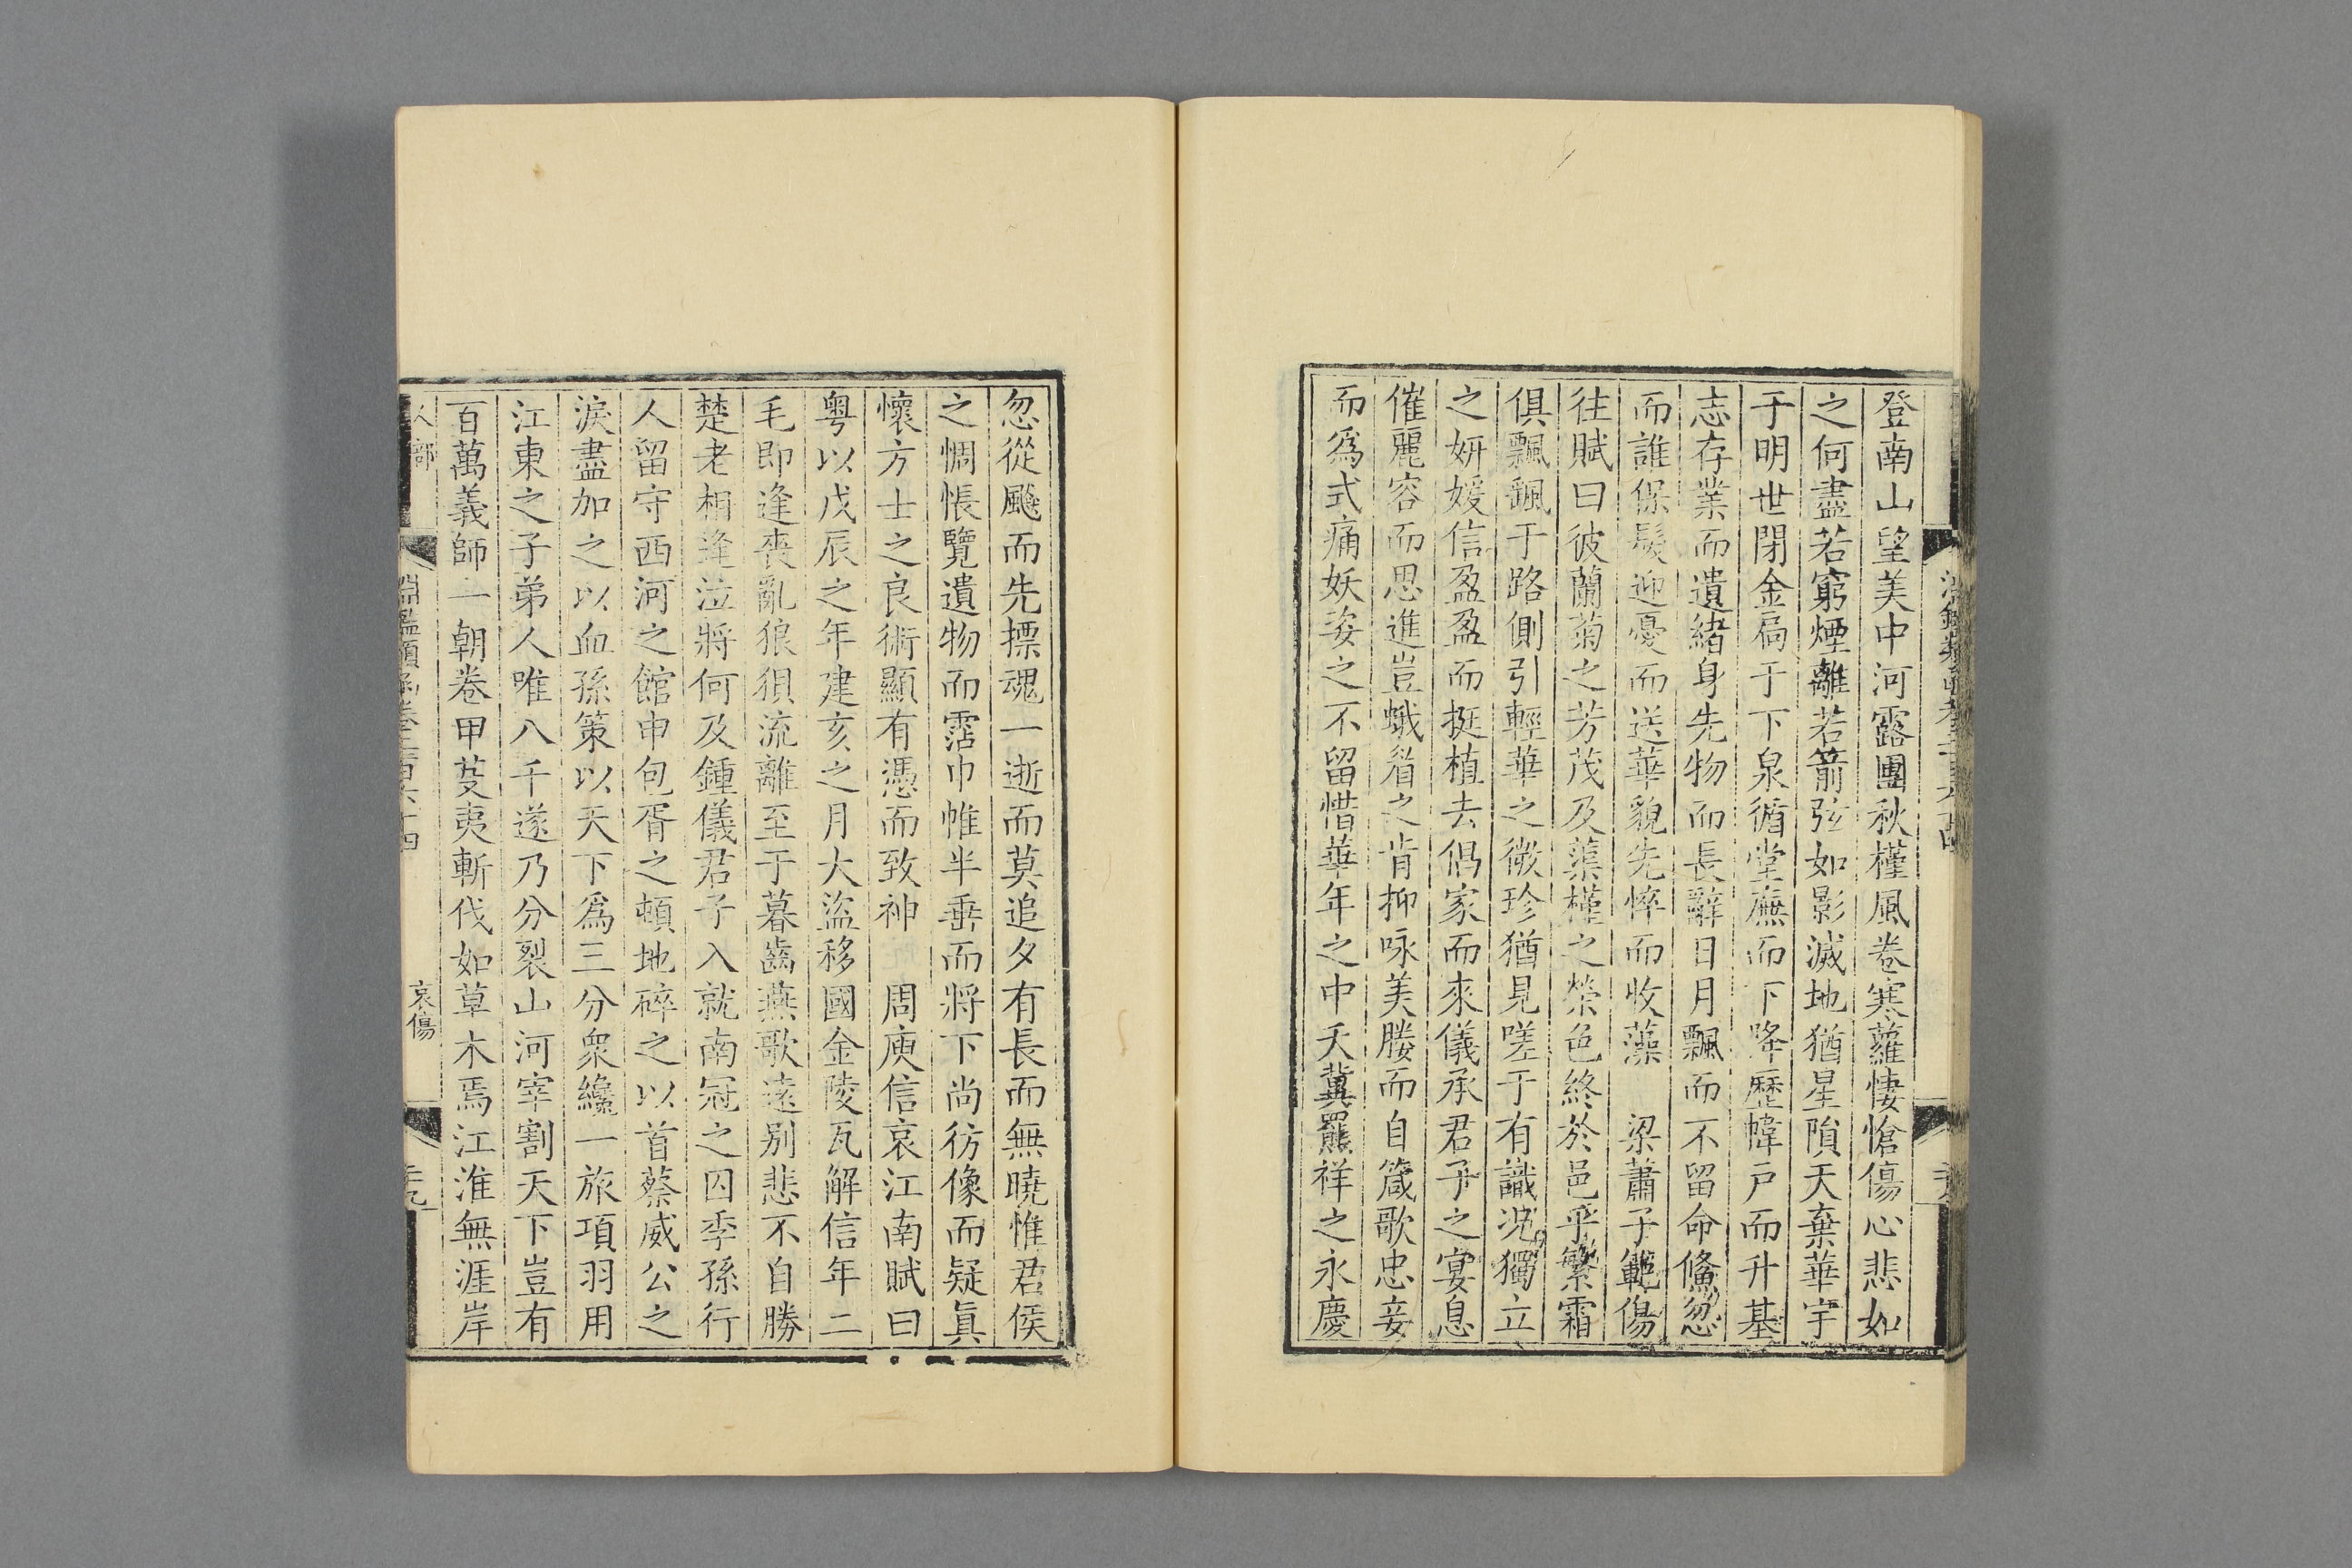 登南山望美中河露團秋槿風卷寒蘿悽愴傷心悲如
之何盡若窮煙離若箭弦如影滅地猶星隕天棄華宇
于明世閉金扃于下泉循堂廡而下降歷幃户而升基
志存業而遺緒身先物而長辭日月飄而不留命儵忽
而誰保髮迎憂而送華貌先悴而收藻　梁蕭子範傷
往賦曰彼蘭菊之芳茂及蕖槿之榮色終於邑乎繁霜
俱飄颻于路側引輕華之微珍猶見嗟于有識况獨立
之妍媛信盈盈而挺植去倡家而來儀承君子之宴息
催麗容而思進豈蛾眉之肯抑咏美媵而自箴歌忠妾
而爲式痛妖姿之不留惜華年之中夭冀羆祥之永慶
忽從颷而先摽魂一逝而莫追夕有長而無曉惟君侯
之惆悵覽遺物而霑巾帷半垂而將下尚彷像而疑眞
懷方士之良術顯有憑而致神　周庾信哀江南賦曰
粤以戊辰之年建亥之月大盜移國金陵瓦解信年二
毛即逢喪亂狼狽流離至于暮齒燕歌遠别悲不自勝
楚老相逢泣將何及鍾儀君子入就南冠之囚季孫行
人留守西河之館申包胥之頓地碎之以首蔡威公之
淚盡加之以血孫策以天下爲三分衆纔一旅項羽用
江東之子弟人唯八千遂乃分裂山河宰割天下豈有
百萬義師一朝卷甲芟夷斬伐如草木焉江淮無涯岸
人部　淵鑑類函卷二百六十四　哀傷